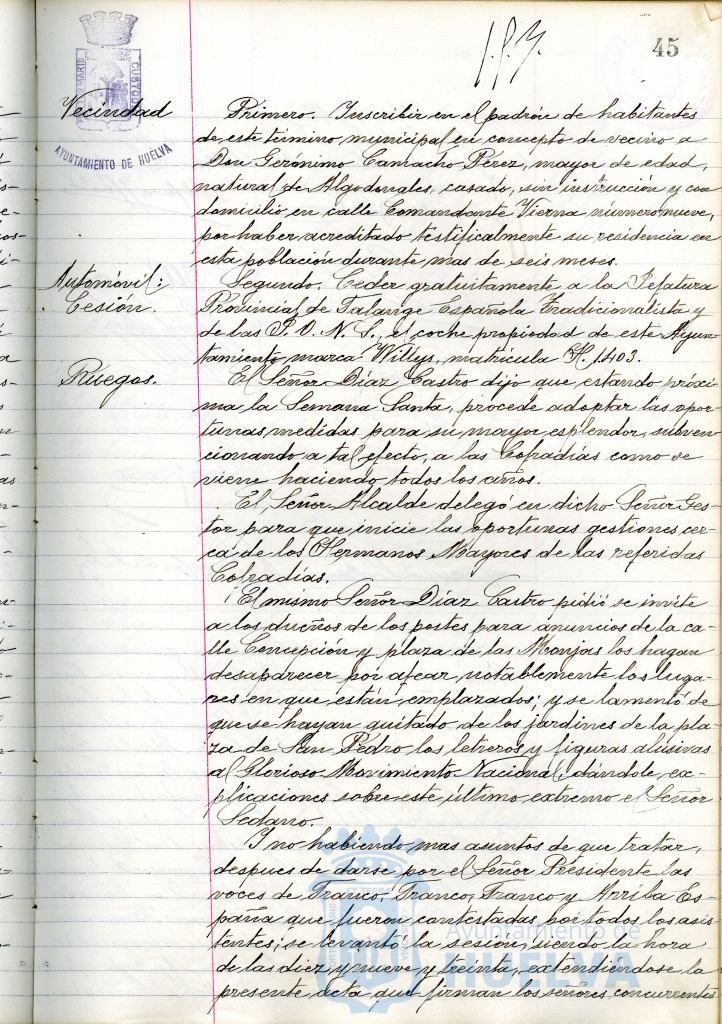 45
Vecindad
AYUNTAMIENTO DE HUELVA
Primero. Inscribir en el padrón de habitantes
de este término municipal en concepto de vecino a
Don Gerónimo Camacho Pérez, mayor de edad,
natural de Algodonales, casado, sin instrucción y con
domicilio en calle Comandante Vierna número nueve,
por haber acreditado testificalmente su residencia en
esta población durante mas de seis meses.
Automóvil:
Cesión.
Segundo. Ceder gratuitamente a la Jefatura
Provincial de Falange Española Tradicionalista y
de las J. O. N. S. el coche propiedad de este Ayun-
tamiento marca Willys, matrícula H. 1403.
Ruegos.
El Señor Díaz Castro dijo que estando próxi-
ma la Semana Santa, procede adoptar las opor-
tunas medidas para su mayor esplendor, subven-
cionando a tal efecto, a las Cofradías como se
viene haciendo todos los años.
El Señor Alcalde delegó en dicho Señor Ges-
tor para que inicie las oportunas gestiones cer-
ca de los Hermanos Mayores de las referidas
Cofradías.
El mismo Señor Díaz Castro pidió se invite
a los dueños de los postes para anuncios de la ca-
lle Concepción y plaza de las Monjas los hagan
desaparecer por afear notablemente los luga-
res en que están emplazados; y se lamentó de
que se hayan quitado de los jardines de la pla-
za de San Pedro los letreros y figuras alusivas
al Glorioso Movimiento Nacional, dándole ex-
plicaciones sobre este último extremo el Señor
Sedano.
Y no habiendo mas asuntos de que tratar,
despues de darse por el Señor Presidente las
voces de Franco, Franco, Franco y Arriba Es-
paña que fueron contestadas por todos los asis-
tentes; se levantó la sesión, siendo la hora
de las diez y nueve y treinta, extendiéndose la
presente acta que firman los señores concurrentes
Ayuntamiento de
HUELVA